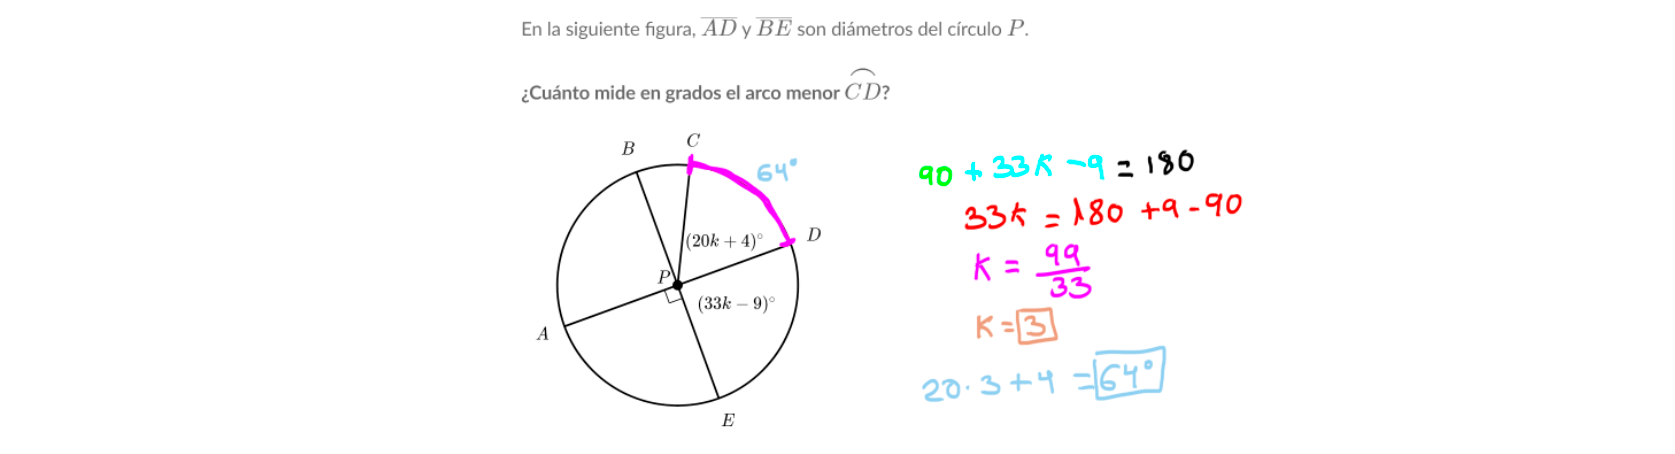 En la siguiente figura, AD y BE son diámetros del círculo P.
¿Cuánto mide en grados el arco menor CD?
B
C
64°
D
(20k + 4)°
P
(33k − 9)°
A
E
90 + 33K - 9 = 180
33K = 180 + 9 - 90
K = 99/33
K = 3
20 · 3 + 4 = 64°